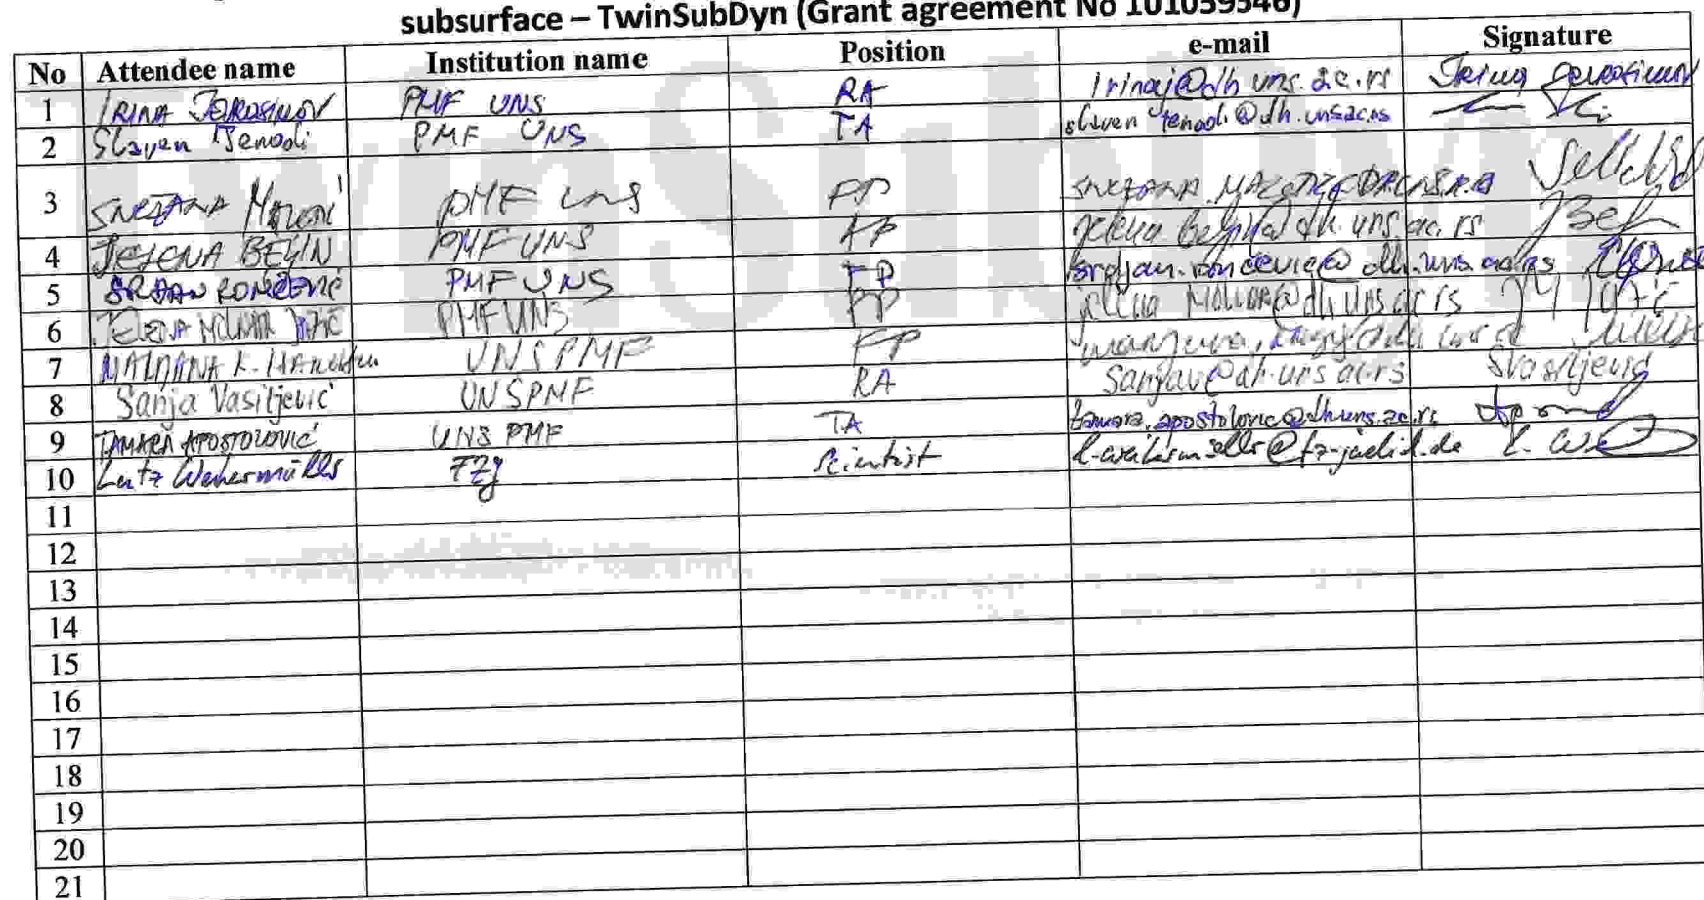 subsurface – TwinSubDyn (Grant agreement No 101059546)
No Attendee name Institution name Position e-mail Signature
1 IRINA JEROSIMOV PMF UNS RA irinaj@dh.uns.ac.rs
2 Slaven Tenodi PMF UNS TA slaven.tenodi@dh.uns.ac.rs
3 SNEŽANA PMF UNS FP
4 JELENA BEGIN PMF UNS AP jelena.begin@dh.uns.ac.rs
5 SRĐAN RONČEVIĆ PMF UNS FP srdjan.roncevic@dh.uns.ac.rs
6 JELENA MOLNAR JAZIĆ PMF UNS FP jelena.molnar@dh.uns.ac.rs
7 UNS PMF FP
8 Sanja Vasiljević UNSPMF RA sanjav@dh.uns.ac.rs Svasiljević
9 TAMARA APOSTOLOVIĆ UNS PMF TA tamara.apostolovic@dh.uns.ac.rs
10 Lutz Weihermüller FZJ Scientist
11
12
13
14
15
16
17
18
19
20
21